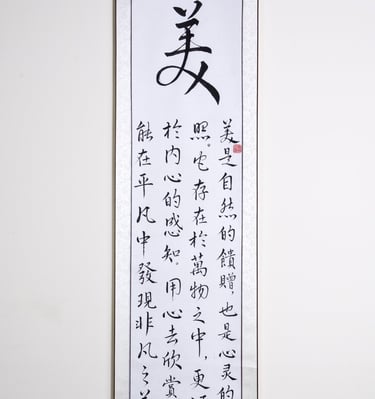 美
美是自然的饋贈，也是心灵的
照。它存在於萬物之中，更
於内心的感知。用心去欣賞
能在平凡中發現非凡之美